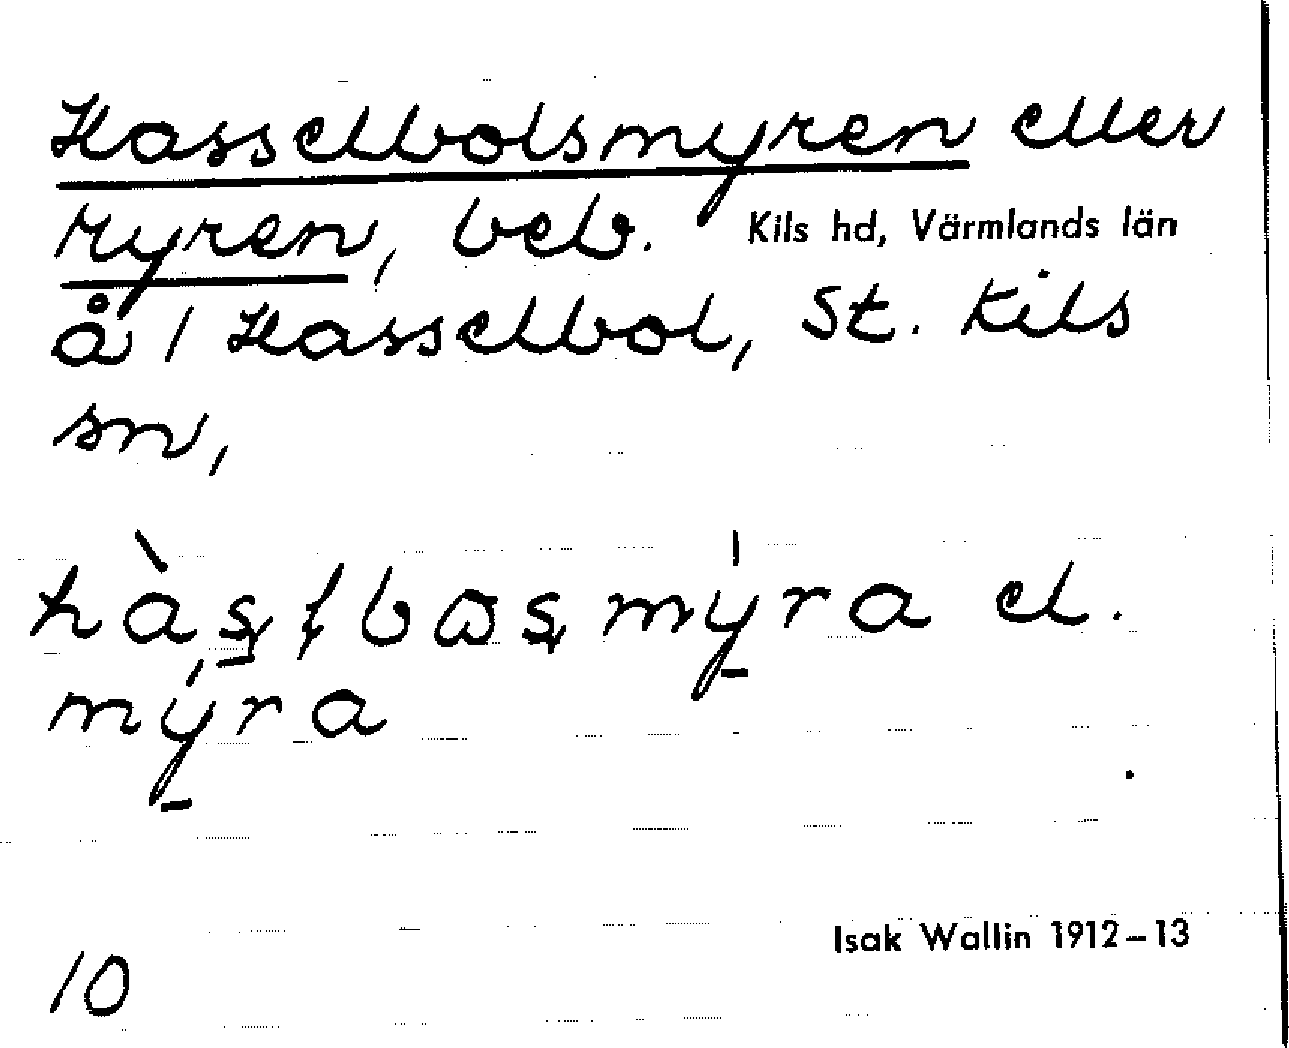 Hasselbolsmyren eller
Myren, beb. Kils hd, Värmlands län
å 1 Hasselbol, St. Kils
sn,
el.
mýra
Isak Wallin 1912–13
10